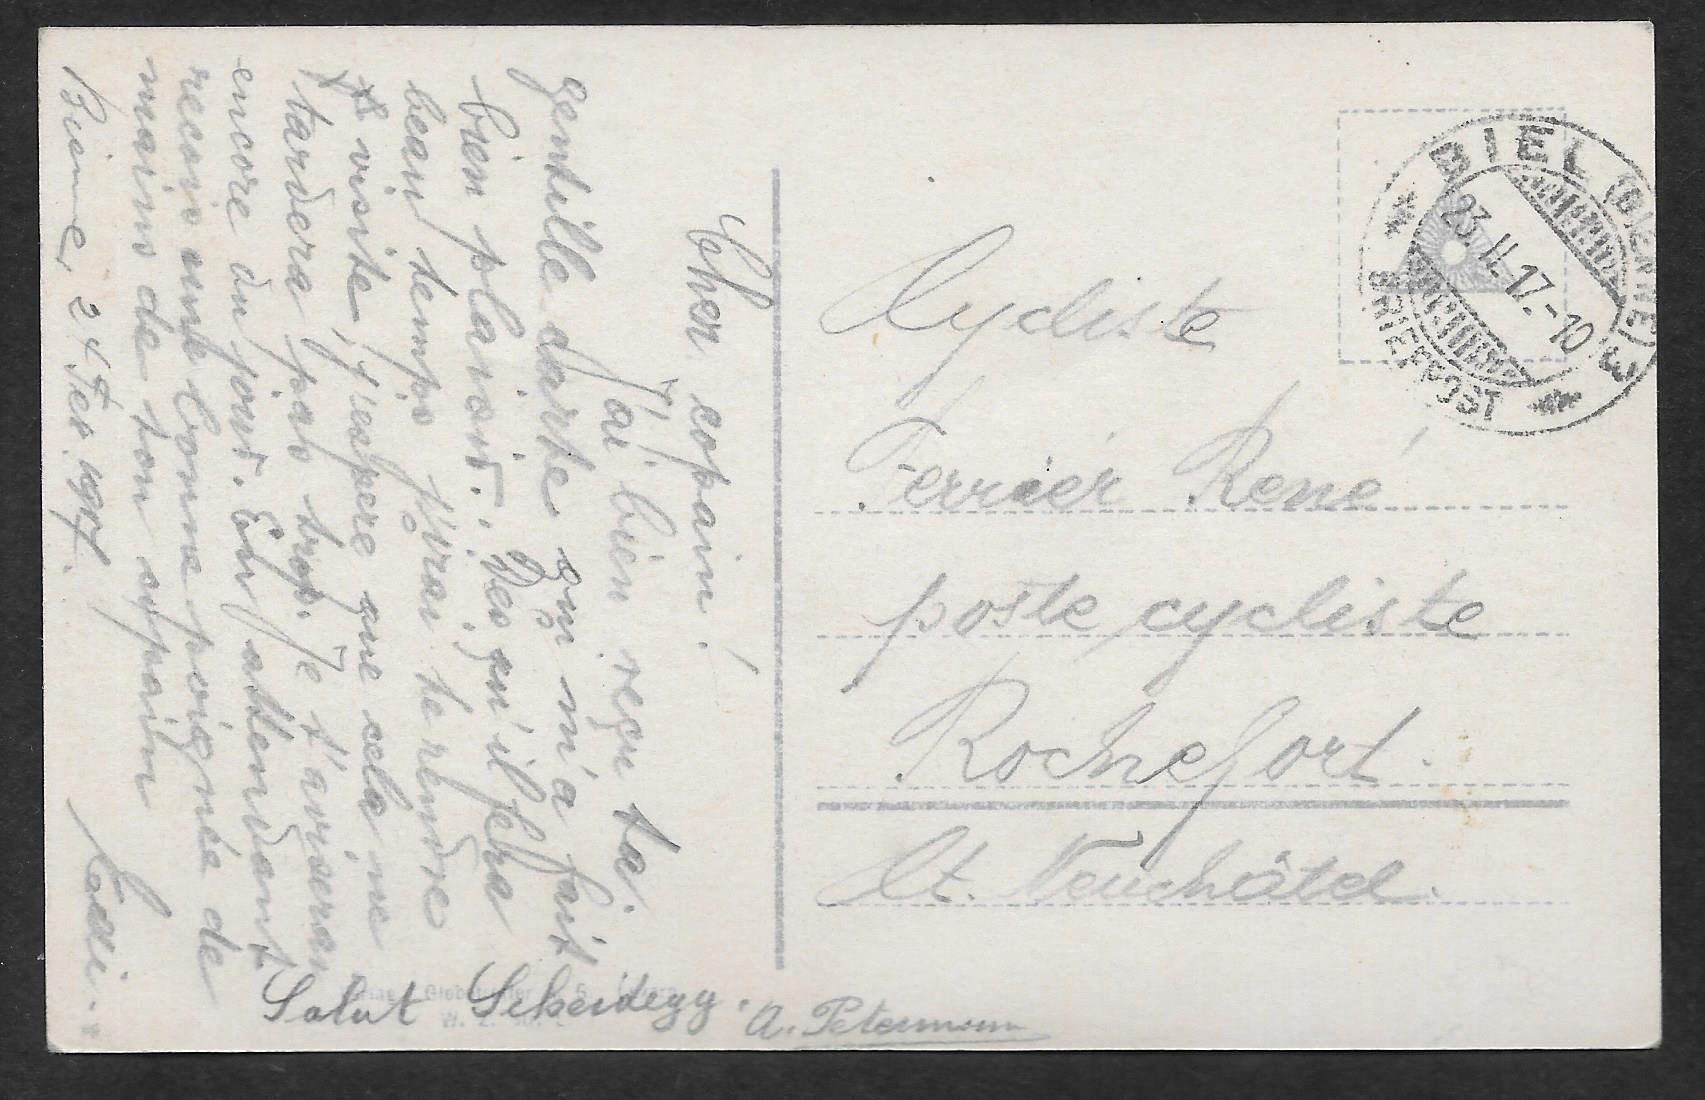 Cher copain!
J'ai bien reçu ta
gentille carte qui m'a fait
bien plaisir. Dès qu'il fera
beau temps j'irai te rendre
visite, j'espère que cela ne
tardera pas trop. Je t'aviserai
encore un jour. En attendant
reçois une bonne poignée de
mains de ton copain
Bienne, 24 Fev. 1917.
Salut Scheidegg.
A. Petermann
Cycliste
Ferrier René
poste cycliste
Rochefort.
Ct. Neuchâtel.
BIEL (BIENNE) 3
23.II.17.-10
BRIEFPOST